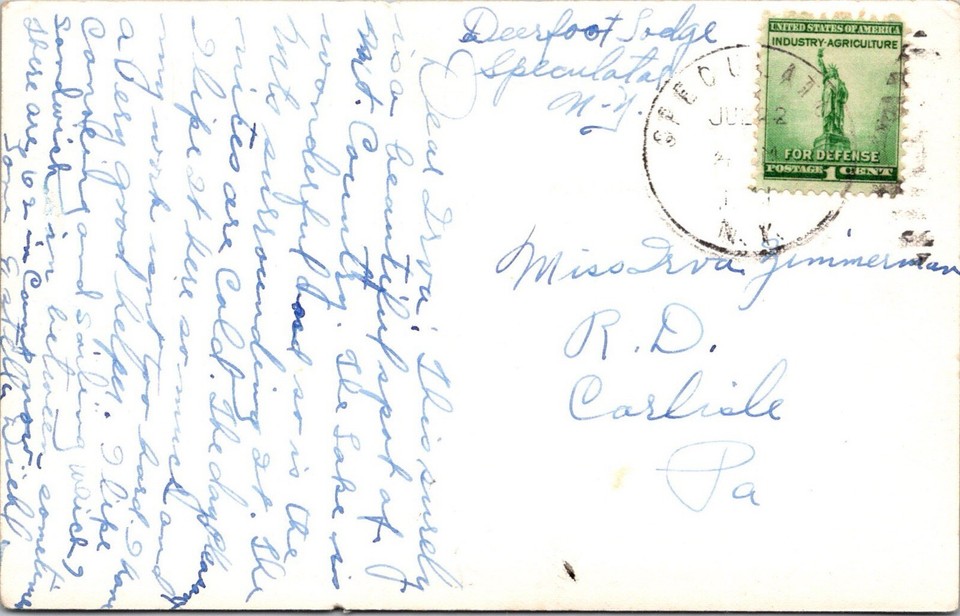 Deerfoot Lodge
Speculator
N.Y.
UNITED STATES OF AMERICA
INDUSTRY-AGRICULTURE
FOR DEFENSE
POSTAGE 1 CENT
SPECULATOR
JUL 22
N.Y.
Miss Irva Zimmerman
R.D.
Carlisle
Pa
Dear Irva: This surely
is a beautiful spot of
Mt. Country. The Lake is
wonderful and so is the
Mts surrounding it. The
nites are Cold. The days
I like it here so much and
my work isnt too hard. I have
a very good helper. I like
Canoeing and sailing which I
sandwich in between sometime
there are 62 in Camp now